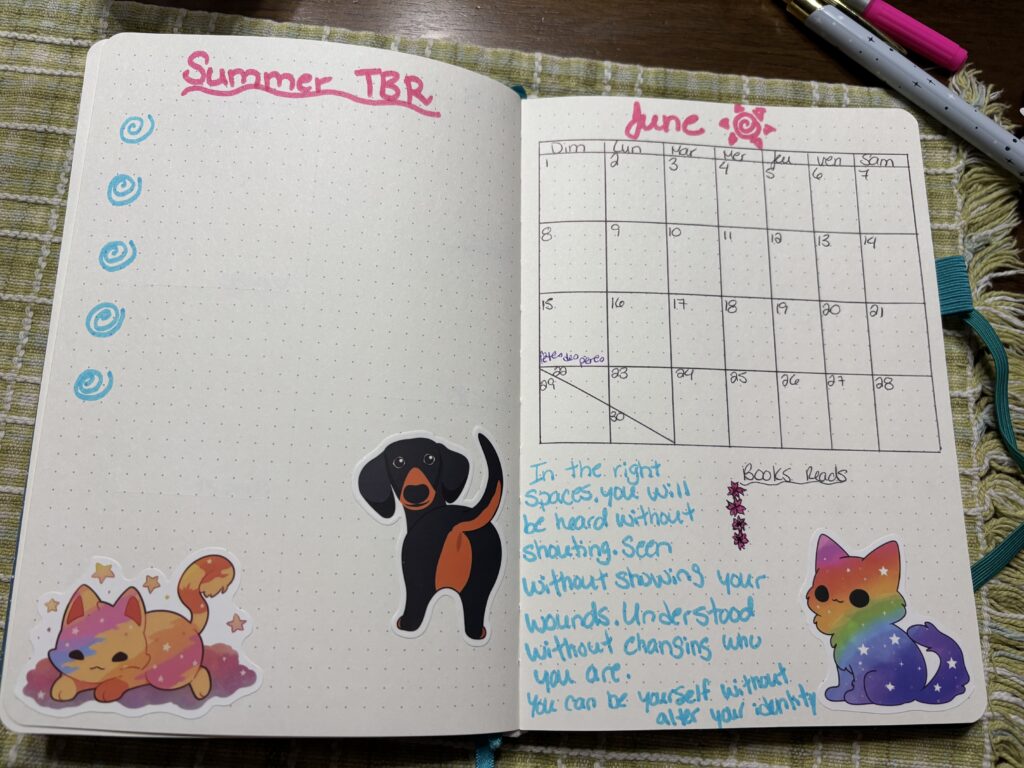 Summer TBR
June
Dim Lun Mar Mer Jeu Ven Sam
1 2 3 4 5 6 7
8 9 10 11 12 13 14
15 16 17 18 19 20 21
fêtes des pères
22 23 24 25 26 27 28
29 30
In the right
spaces, you will
be heard without
shouting. Seen
without showing your
wounds. Understood
without changing who
you are.
You can be yourself without
alter your identity
Books Reads